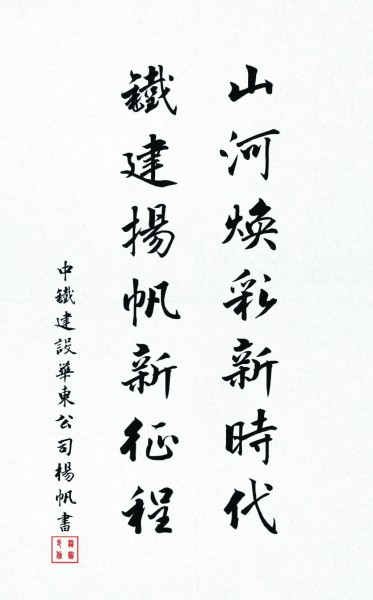 山河焕彩新時代
鐵建揚帆新征程
中鐵建設華東公司楊帆書